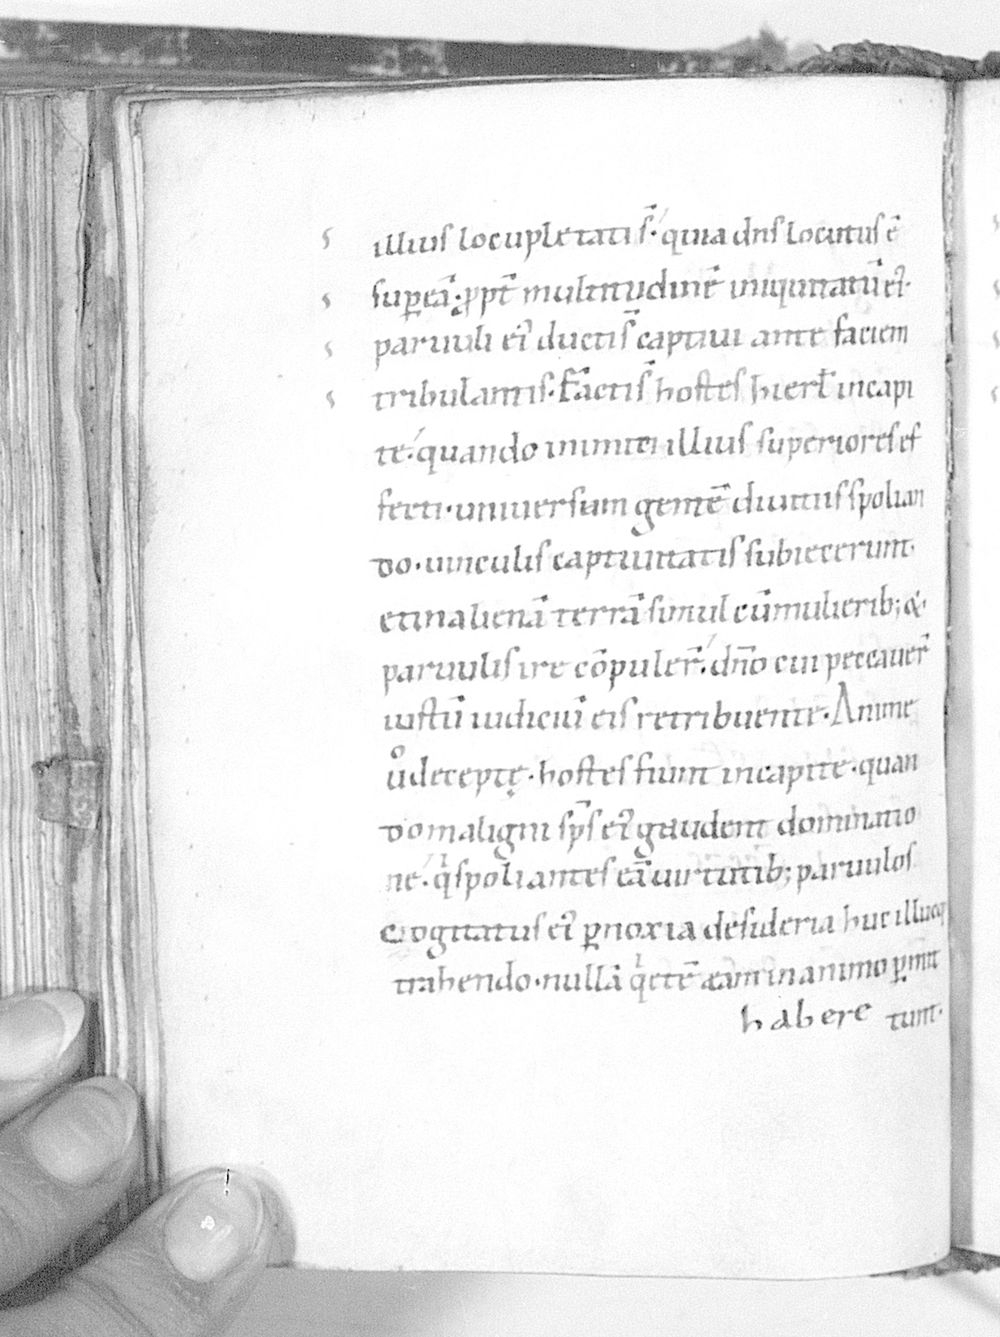 illius locupletati s̄· quia dn̄s locutus ē
sup eā· ꝓpt̄ multitudinē iniquitatū ei᾽·
paruuli ei᾽ ducti s̄ captiui ante faciem
tribulantis· Facti s̄ hostes hierl̄ in capi
te· quando inimici illius superiores ef
fecti· uniuersam gentē diuitiis spolian
do· uinculis captiuitatis subiecerunt·
et in alienā terrā simul cū mulierib; &
paruulis ire cōpuler̄· dn̄o cui peccauer̄
iustū iudiciū eis retribuente· Anime
ů deceptę· hostes fiunt in capite· quan
do maligni sp̄s ei᾽ gaudent dominatio
ne· qͥ spoliantes eā uirtutib; paruulos
cogitatus ei᾽ ꝑ noxia desideria huc illucq;
trahendo· nullā qͥetē eam in animo ꝑmit
habere tunt·